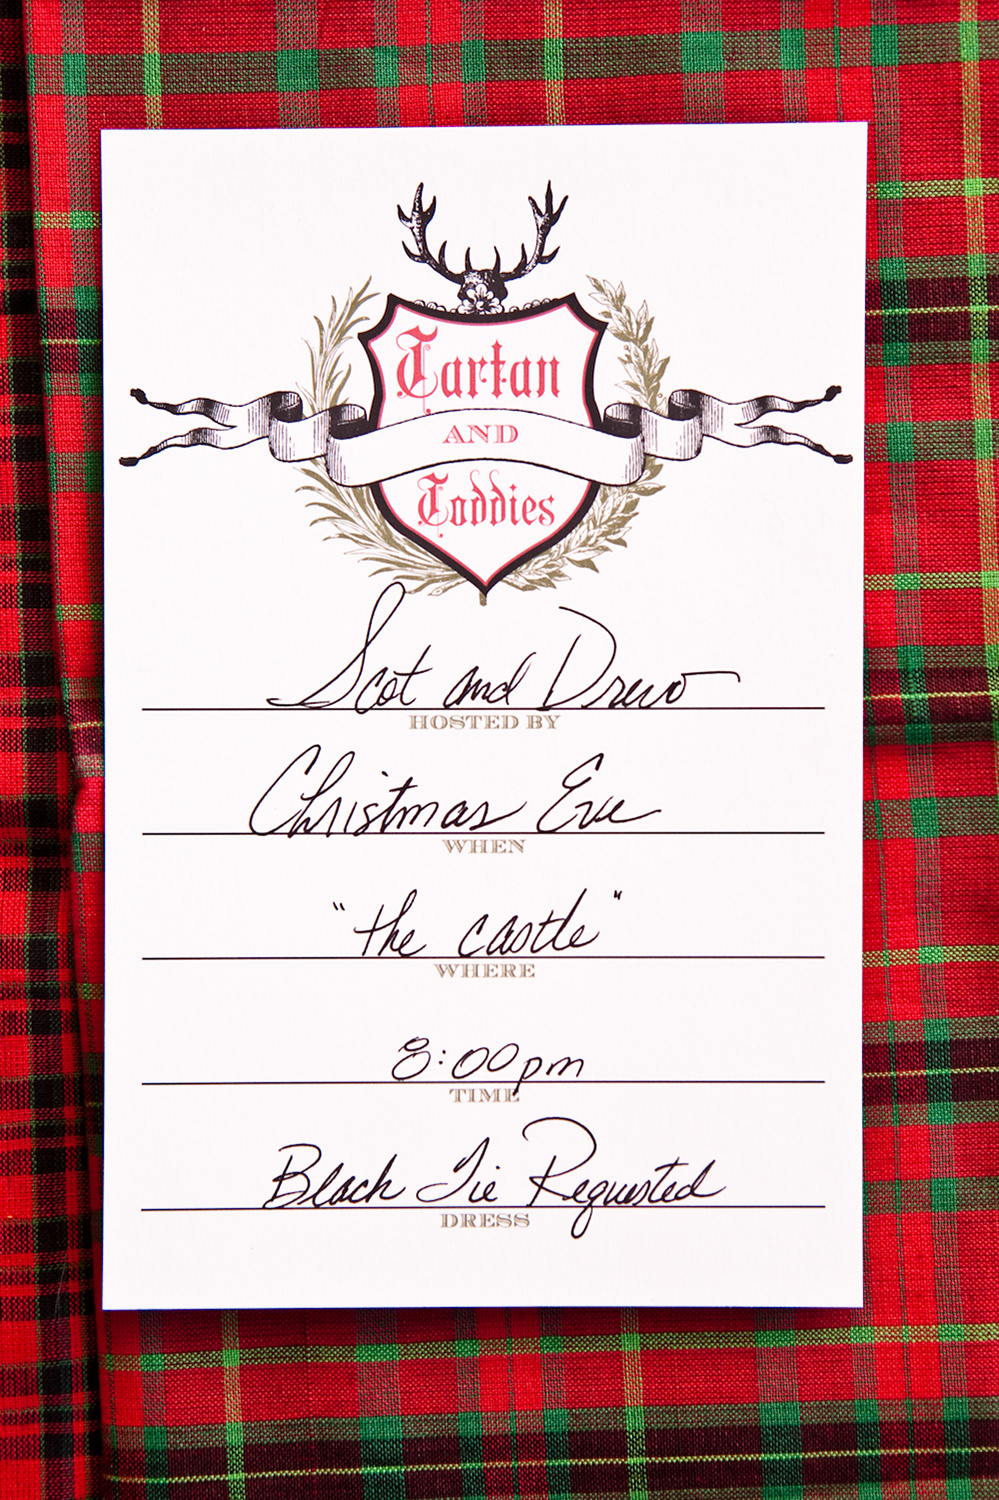 Tartan
AND
Toddies
Scot and Drew
HOSTED BY
Christmas Eve
WHEN
"the castle"
WHERE
8:00pm
TIME
Black Tie Requested
DRESS